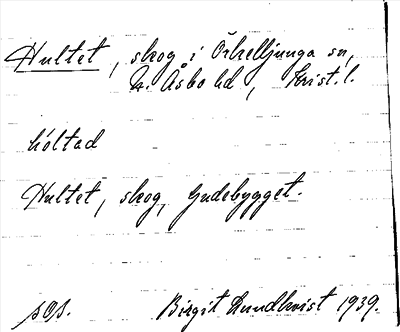 Hultet, skog i Örkelljunga sn,
N. Åsbo hd, Krist. l.
hóltad
Hultet, skog, Gudebygget.
sgs. Birgit Lundkvist 1939.